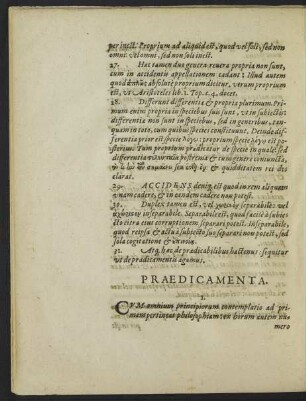 per incl. Proprium ad aliquid est, quod vel soli, sed non
omni: vel omni, sed non soli inest.
27. Haec tamen duo genera revera propria non sunt,
cum in accidentis appellationem cadant: Illud autem
quod absolutè proprium dicitur, utrumque proprium
est, ut Aristoteles lib. 1. Top. c. 4. docet.
28. Differunt differentia & proprium plurimum. Primum
enim propria in speciebus suis sunt, ut in subiectis:
differentia non sunt in speciebus, sed in generibus, tanquam
in toto, cum quibus species constituunt. Deinde differentia
prior est specie
sterius: Tum proprium praedicatur de specie in quale, sed
differentia
& quidditatem rei declarat.
29. ACCIDENS denique est quod in rem aliquam
cadere, & in eandem cadere non potest.
30. Duplex tamen est, vel separabile: vel
inseparabile. Separabile est, quod facilè à subiecto
citra eius corruptionem separari potest. Inseparabile,
quod reipsa & actu à subiecto separari non potest, sed
sola cogitatione &
31. Atque haec de praedicabilibus hactenus: sequitur
ut de praedicamentis agamus.
PRAEDICAMENTA.
1.
CVM omnium principiorum contemplatio ad primam
pertineat philosophiam: tum horum autem numero